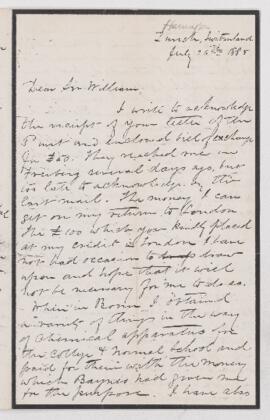 Zurich, Switzerland
July 24th 1885
Dear Sir William
I write to acknowledge
the receipt of your letter of the
1st inst and enclosed bill of exchange
for £50. They reached me in
Freiberg several days ago, but
too late to acknowledge by the
last mail. The money I can
get on my return to London
The £100 which you kindly placed
at my credit in London I have
not had occasion to draw
upon and hope that it will
not be necessary for me to do so.
When in Bonn I obtained
a variety of things in the way
of chemical apparatus for
the College & Normal School and
paid for them with the money
which Baynes had given me
for the purpose. I have also